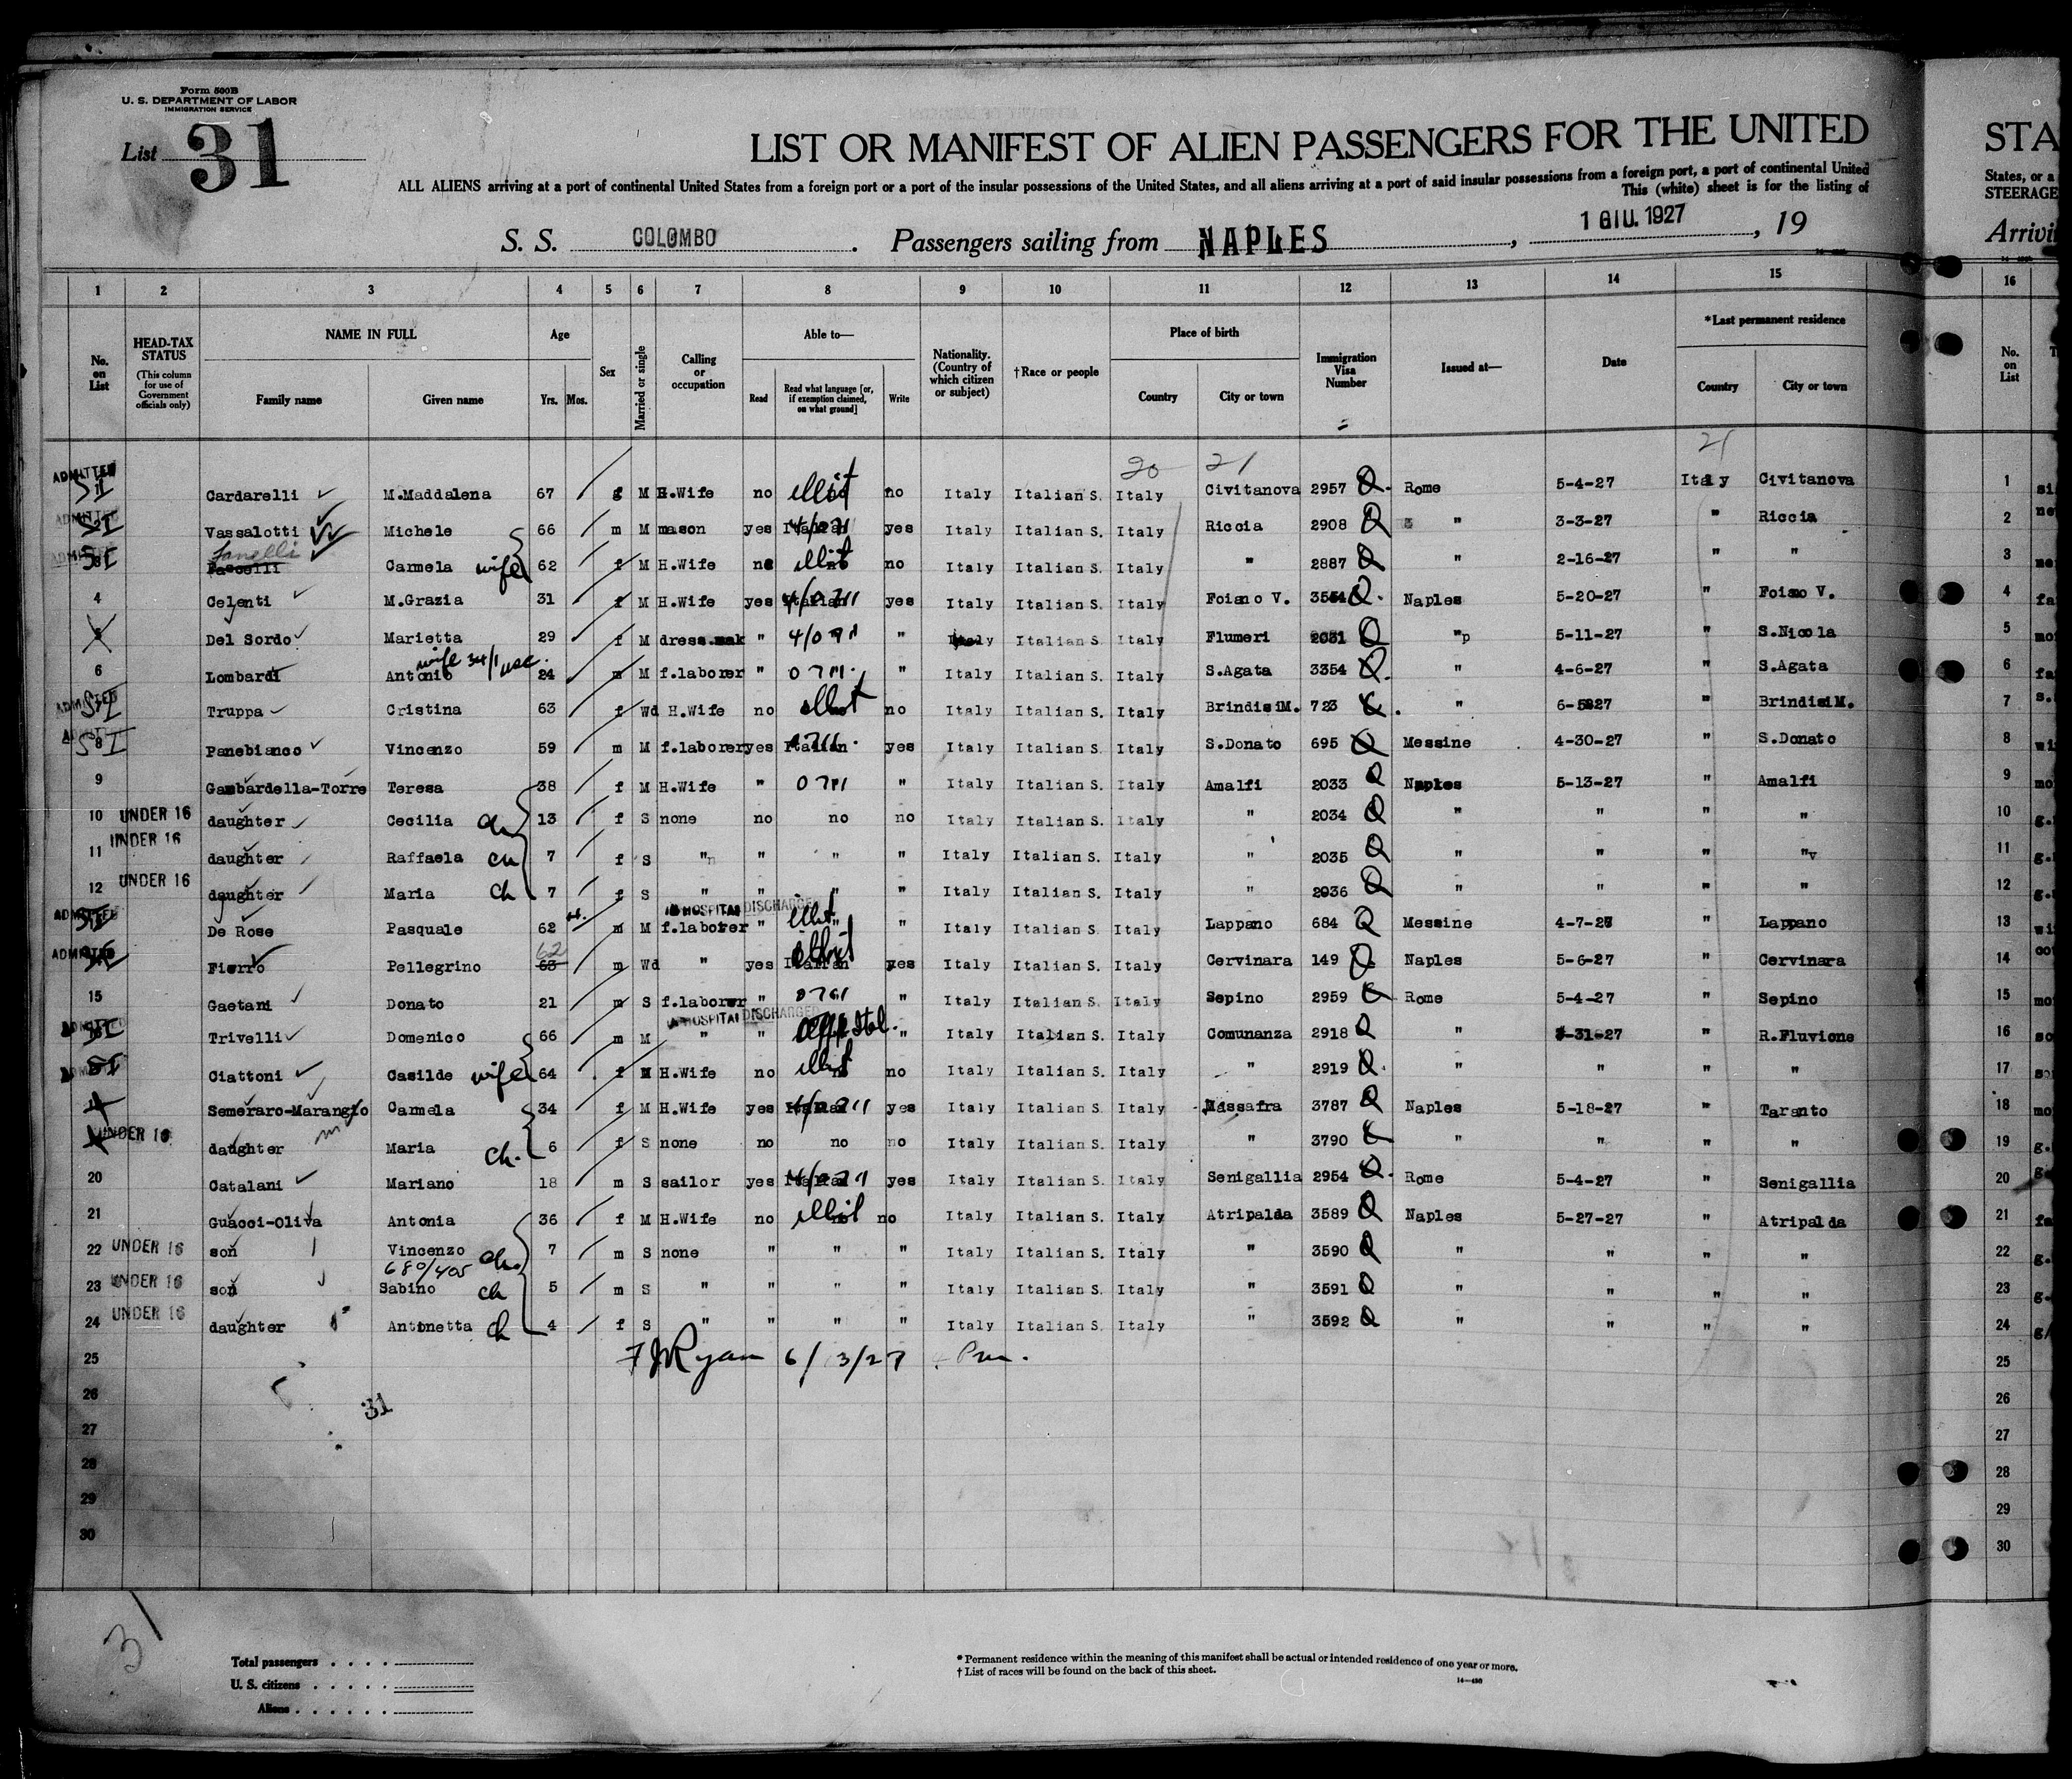 Form 500B
U. S. DEPARTMENT OF LABOR
IMMIGRATION SERVICE
List 31
LIST OR MANIFEST OF ALIEN PASSENGERS FOR THE UNITED
ALL ALIENS arriving at a port of continental United States from a foreign port or a port of the insular possessions of the United States, and all aliens arriving at a port of said insular possessions from a foreign port, a port of continental United
This (white) sheet is for the listing of
S. S. COLOMBO . Passengers sailing from NAPLES , 1 GIU. 1927 , 19
STA
States, or a
STEERAGE
Arrivi
1 2 3 4 5 6 7 8 9 10 11 12 13 14 15 16
No. on List
HEAD-TAX STATUS (This column for use of Government officials only)
NAME IN FULL
Family name Given name
Age
Yrs. Mos.
Sex
Married or single
Calling or occupation
Able to—
Read Read what language [or, if exemption claimed, on what ground] Write
Nationality. (Country of which citizen or subject)
†Race or people
Place of birth
Country City or town
Immigration Visa Number
Issued at—
Date
*Last permanent residence
Country City or town
No. on List
20 21 21
ADMITTED Cardarelli M.Maddalena 67 f M H.Wife no no Italy Italian S. Italy Civitanova 2957 Rome 5-4-27 Italy Civitanova 1
ADMITTED Vassalotti Michele 66 m M mason yes Italian yes Italy Italian S. Italy Riccia 2908 " 3-3-27 " Riccia 2
Carmela wife 62 f M H.Wife no no Italy Italian S. Italy " 2887 " 2-16-27 " " 3
4 Celenti M.Grazia 31 f M H.Wife yes Italian yes Italy Italian S. Italy Foiano V. 3554 Naples 5-20-27 " Foiano V. 4
5 Del Sordo Marietta 29 f M dress.mak " " Italy Italian S. Italy Flumeri 2031 " 5-11-27 " S.Nicola 5
6 Lombardi Antonio 24 m M f.laborer " " Italy Italian S. Italy S.Agata 3354 " 4-6-27 " S.Agata 6
ADMITTED Truppa Cristina 63 f Wd H.Wife no no Italy Italian S. Italy BrindisiM. 723 " " BrindisiM. 7
8 Panebianco Vincenzo 59 m M f.laborer yes Italian yes Italy Italian S. Italy S.Donato 695 Messine 4-30-27 " S.Donato 8
9 Gambardella-Torre Teresa 38 f M H.Wife " " Italy Italian S. Italy Amalfi 2033 Naples 5-13-27 " Amalfi 9
10 UNDER 16 daughter Cecilia ch 13 f S none no no no Italy Italian S. Italy " 2034 " " " " 10
11 UNDER 16 daughter Raffaela ch 7 f S " " " " Italy Italian S. Italy " 2035 " " " " 11
12 UNDER 16 daughter Maria ch 7 f S " " " " Italy Italian S. Italy " 2036 " " " " 12
IN HOSPITAL DISCHARGED
ADMITTED De Rose Pasquale 62 m M f.laborer " " " Italy Italian S. Italy Lappano 684 Messine 4-7-27 " Lappano 13
62
ADMITTED Fierro Pellegrino 63 m Wd " yes Italian yes Italy Italian S. Italy Cervinara 149 Naples 5-6-27 " Cervinara 14
15 Gaetani Donato 21 m S f.laborer " " Italy Italian S. Italy Sepino 2959 Rome 5-4-27 " Sepino 15
HOSPITAL DISCHARGED
Trivelli Domenico 66 m M " " " Italy Italian S. Italy Comunanza 2918 " " R.Fluvione 16
Ciattoni Casilde wife 64 f M H.Wife no no no Italy Italian S. Italy " 2919 " " " " 17
Semeraro-Marangio Carmela 34 f M H.Wife yes Italian yes Italy Italian S. Italy Massafra 3787 Naples 5-18-27 " Taranto 18
UNDER 16 daughter Maria ch. 6 f S none no no no Italy Italian S. Italy " 3790 " " " " 19
20 Catalani Mariano 18 m S sailor yes Italian yes Italy Italian S. Italy Senigallia 2954 Rome 5-4-27 " Senigallia 20
21 Guacci-Oliva Antonia 36 f M H.Wife no no no Italy Italian S. Italy Atripalda 3589 Naples 5-27-27 " Atripalda 21
22 UNDER 16 son Vincenzo ch. 7 m S none " " " Italy Italian S. Italy " 3590 " " " " 22
680/405
23 UNDER 16 son Sabino ch 5 m S " " " " Italy Italian S. Italy " 3591 " " " " 23
24 UNDER 16 daughter Antonetta ch 4 f S " " " " Italy Italian S. Italy " 3592 " " " " 24
25 Ryan 6/13/27 25
26 26
31
27 27
28 28
29 29
30 30
31
Total passengers
U. S. citizens
Aliens
* Permanent residence within the meaning of this manifest shall be actual or intended residence of one year or more.
† List of races will be found on the back of this sheet.